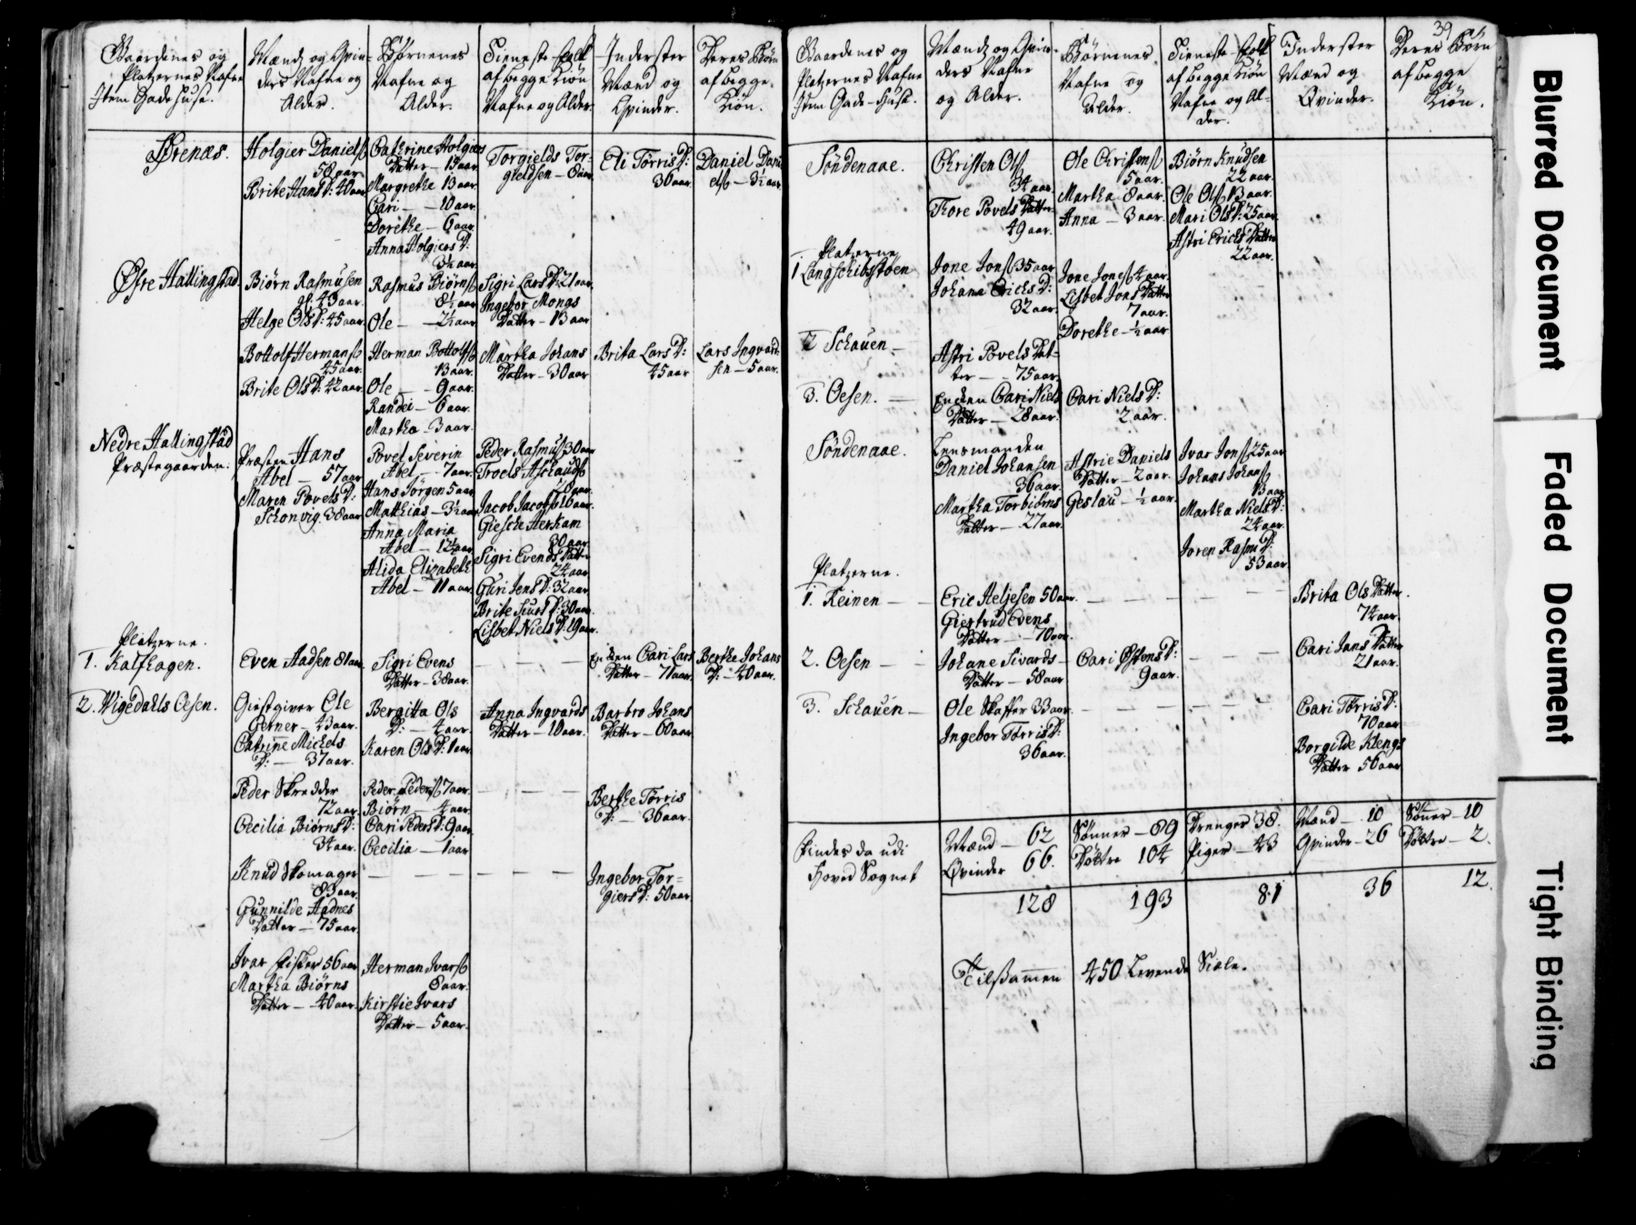 Gaardenes og
Platzernes Nafne
Item Gade Huse.
Mænd og Qvin-
ders Nafne og
Alder.
Børnenes
Nafne og
Alder.
Tieneste-folk
af begge Kiøn
Nafne og Alder.
Inderster
Mænd og
Qvinder.
Deres Børn
af begge
Kiøn.
Ørenæs.
Holgier Daniels
58 aar
Brite Hans D: 40 aar
Cathrine Holgiers
Datter — 15 aar
Margrethe 13 aar
Cari — 10 aar
Dorethe — 6 aar
Anna Holgiers D:
3½ aar
Torgields Tor-
gieldsen — 8 aar
Eli Torris D:
36 aar
Daniel Dani
els — 3½ aar
Øfre Hallingstad
Biørn Rasmusen
gl. 43 aar.
Helge Ols D: 45 aar
Rasmus Biørns
8½ aar
Ole — 2½ aar
Sigri Lars D: 21 aar
Ingebor Mongs
Datter — 13 aar
Bottolf Hermans
45 aar.
Brite Ols D: 42 aar
Herman Bottolfs
13 aar.
Ole — 9 aar.
Randei — 6 aar.
Martha — 3 aar.
Martha Johans
Datter — 30 aar
Brita Lars D:
45 aar
Lars Ingvard-
sen — 5 aar.
Nedre Hallingstad
Præstegaarden.
Præsten Hans
Abel — 57 aar
Maren Povels D:
Schonvig. 38 aar
Povel Severin
Abel — 7 aar.
Hans Jørgen 5 aar
Mathias — 3½ aar
Anna Maria
Abel — 12½ aar
Alida Elizabeth
Abel — 11 aar
Peder Rasmus 30 aar
Troels Aslauds
Jacob Jacobs 16 aar.
Giesche Herkam
30 aar
Sigri Evens Datter
24 aar
Guri Jens D: 32 aar
Brite Siurs D: 30 aar
Lisbet Niels D: 19 aar
Platzerne.
1. Kalfhagen.
Even Aadsen 81 aar
Sigri Evens
Datter — 38 aar
Enken Cari Lars
Datter — 71 aar
Berthe Johans
D: — 40 aar.
2. Wigedahls Oesen.
Giestgiver Ole
Gerner — 43 aar.
Catrine Michels
D: — 37 aar.
Bergitta Ols
D: — 4 aar
Karen Ols D: 1 aar
Anna Ingvards
Datter — 10 aar.
Barbro Johans
Datter — 60 aar
Peder Skredder
72 aar
Cecilia Biørns D:
34 aar.
Peder Peders 7 aar.
Biørn — 4 aar
Cari Peders D: 9 aar
Cecilia — 1 aar
Berthe Torris
D: — 36 aar.
Knud Skomager
83 aar
Gunnilde Aadnes
Datter — 75 aar
Ingebor Tor-
giers D: 50 aar
Ivar Fisker 56 aar
Martha Biørns
Datter — 40 aar
Herman Ivars
8 aar.
Kirstie Ivars
Datter — 5 aar.
39
Gaardenes og
Platzernes Nafne
Item Gade-Huse.
Mænd og Qvin-
ders Nafne
og Alder.
Børnenes
Nafne og
Alder.
Tieneste-folk
af begge Kiøn
Nafne og Al-
der.
Inderster
Mænd og
Qvinder.
Deres Børn
af begge
Kiøn.
Söndenaae.
Christen Ols
34 aar
Thore Povels Datter
49 aar.
Ole Christens
5 aar.
Martha — 8 aar.
Anna — 3 aar.
Biørn Knudsen
22 aar
Ole Ols 13 aar.
Mari Ols D: 25 aar
Astri Erichs Datter
22 aar.
Platzerne
1 Langschibstøen
Jone Jons 35 aar
Johana Erichs D:
32 aar.
Jone Jones 4 aar.
Lisbet Jons Datter
7 aar.
Dorethe — ½ aar
2 Schauen —
Astri Povels Dat-
ter — 75 aar
3. Oesen. —
Encken Cari Niels
Datter — 28 aar.
Cari Niels D:
2 aar.
Söndenaae.
Lensmanden
Daniel Johansen
36 aar.
Martha Torbiörns
Datter — 27 aar.
Astrie Daniels
Datter — 2 aar.
Geslau — ½ aar.
Ivar Jons 25 aar
Johans Johans
13 aar
Martha Niels D:
24 aar
Joren Rasmu D:
53 aar
Platzerne.
1. Reinen —
Eric Heljesen 50 aar.
Giertrud Evens
Datter — 70 aar.
Brita Ols Datter
74 aar.
2. Oesen —
Johane Sivards
Datter — 58 aar
Cari Østens D:
9 aar.
Cari Jans Datter
21 aar.
3. Schauen —
Ole Skaffer 33 aar.
Ingebor Torris D:
36 aar.
Cari Torris D:
70 aar
Borgilde Klengs
Datter 56 aar
Findes da udi
Hoved Sognet
Mænd — 62
Qvinder 66.
128
Sönner — 89
Döttre 104
193
Drenger 38.
Piger — 43
81
Mænd — 10
Qvinder — 26
36
Sönner — 10
Döttre — 2.
12.
Tilsamen 450 Levende Siæle.
Blurred Document
Faded Document
Tight Binding